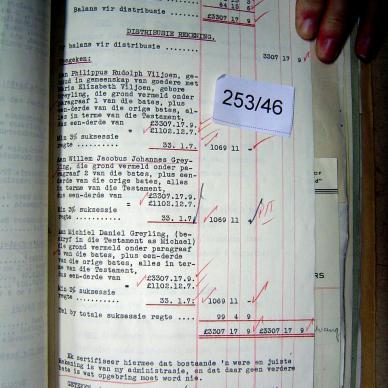 64 15 6
Balans vir distribusie .....
£3307 17 9
DISTRIBUSIE REKENING.
balans vir distribusie ........ 3307 17 9
Toegeken:
Aan Philippus Rudolph Viljoen, ge-
in gemeenskap van goedere met
Maria Elizabeth Viljoen, gebore
Greyling, die grond vermeld onder
Paragraaf 1 van die bates, plus
een-derde van die orige bates, al-
les in terme van die Testament,
dus een-derde van £3307.17.9.
= £1102.12.7.
Min 3% suksessie
regte ......... 33. 1.7 1069 11 -
Aan Willem Jacobus Johannes Grey-
ling, die grond vermeld onder pa-
ragraaf 2 van die bates, plus een-
derde van die orige bates, alles
in terme van die Testament,
dus een-derde van £3307.17.9.
= £1102.12.7.
Min 3% suksessie
regte .......... 33. 1.7 1069 11 -
Aan Michiel Daniel Greyling, (be-
skryf in die Testament as Michael)
die grond vermeld onder paragraaf
van die bates, plus een-derde
van die orige bates, alles in ter-
me van die Testament,
dus een-derde van £3307.17.9.
= £1102.12.7.
Min 3% suksessie
regte .......... 33. 1.7 1069 11 -
Tel by totale suksessie regte .... 99 4 9
£3307 17 9 £3307 17 9
Ek sertifiseer hiermee dat bostaande 'n ware en juiste
is van my administrasie, en dat daar geen verdere
bate is wat opgebring moet word nie.
253/46